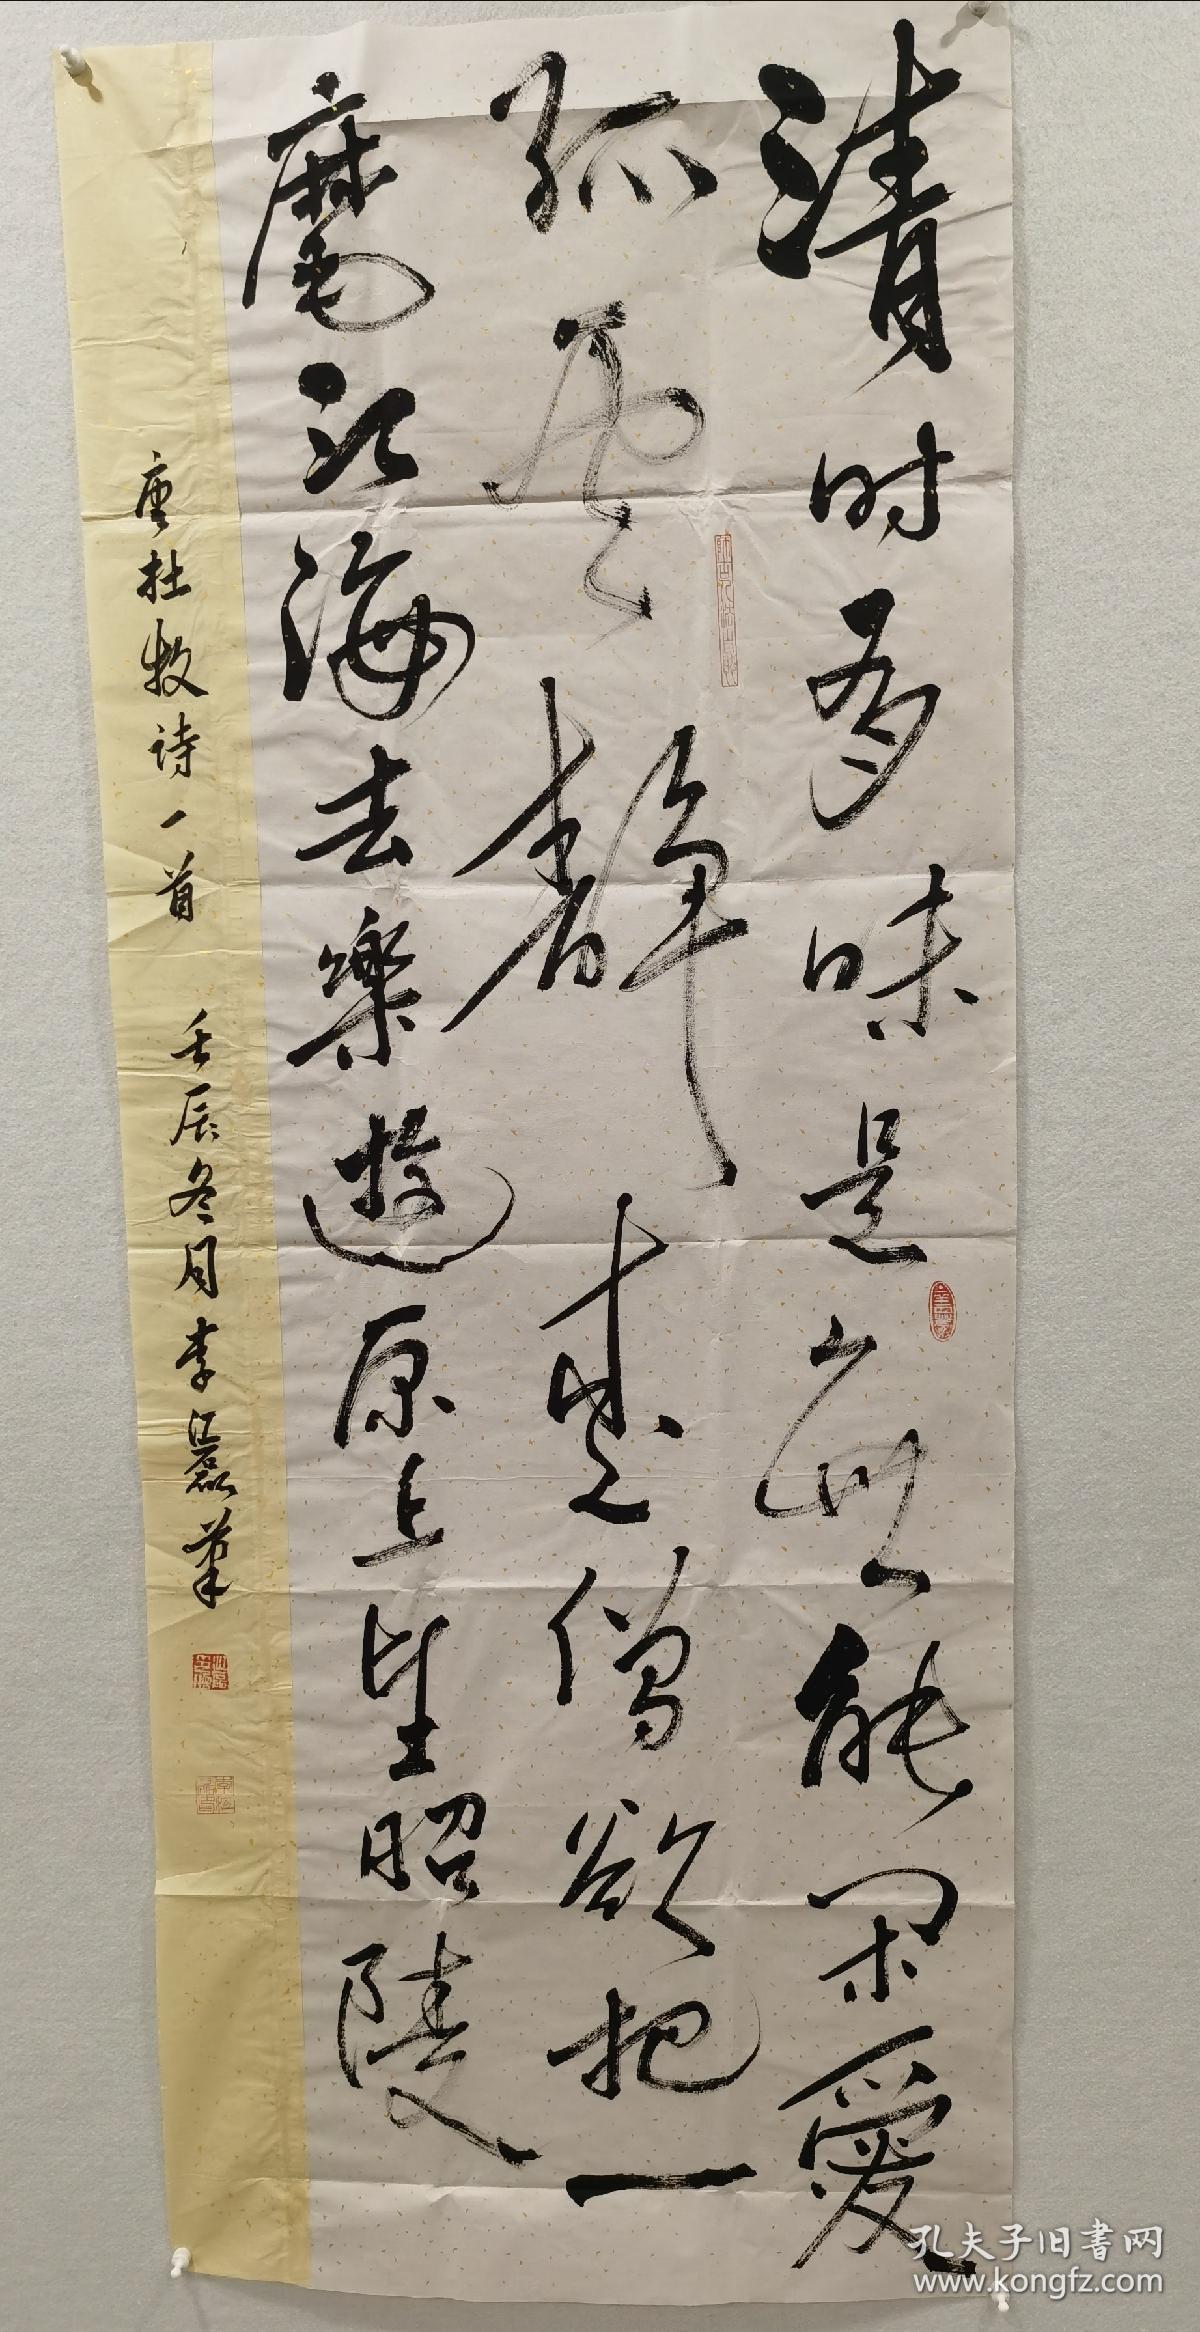 清时有味是無能闲愛
孤雲靜愛僧欲把一
麾江海去樂遊原上望昭陵
唐杜牧诗一首 壬辰冬月李江磊筆
孔夫子旧书网
www.kongfz.com